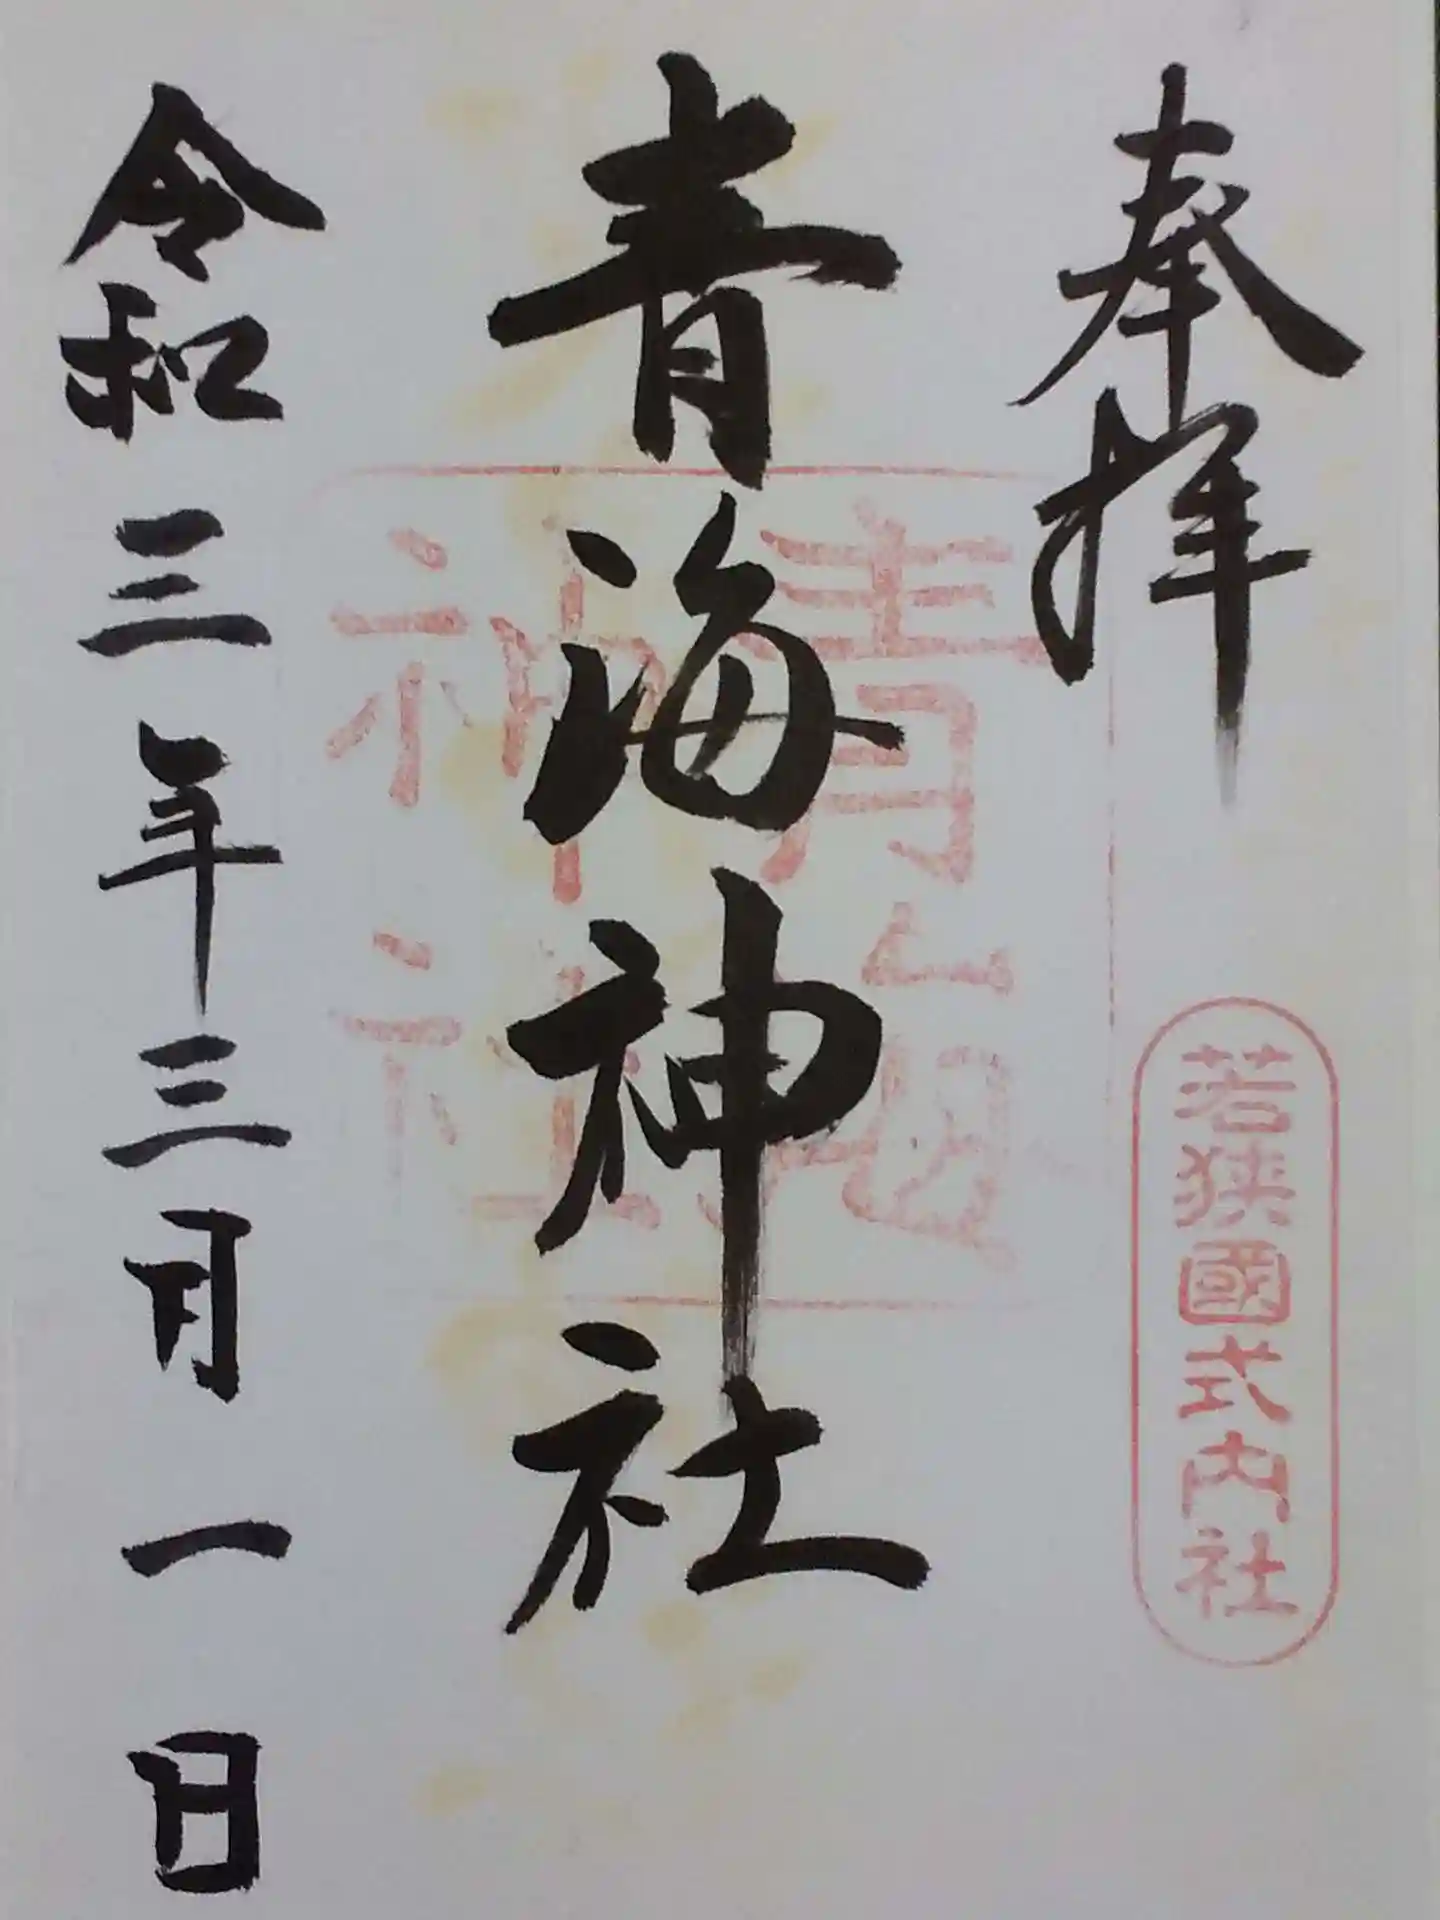 奉拝
若狭國式内社
青海神社
青海
神社
令和三年三月一日